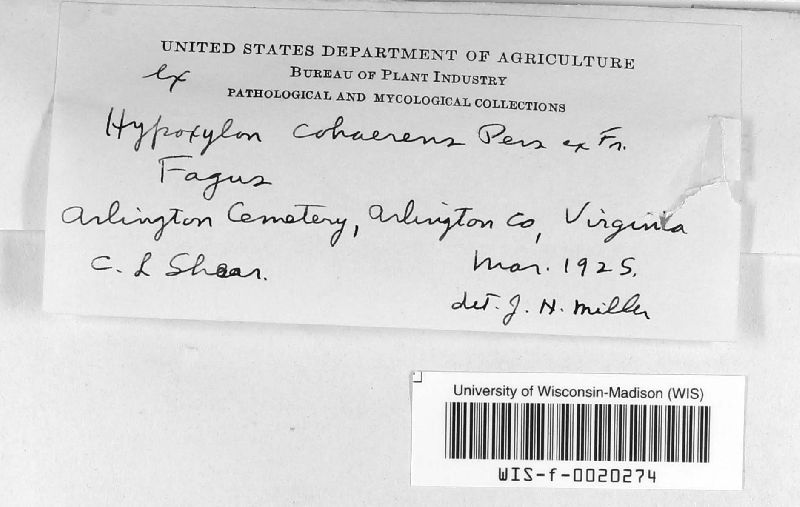 UNITED STATES DEPARTMENT OF AGRICULTURE
ex BUREAU OF PLANT INDUSTRY
PATHOLOGICAL AND MYCOLOGICAL COLLECTIONS
Hypoxylon cohaerens Pers ex Fr.
Fagus
Arlington Cemetery, Arlington Co, Virginia
C. L Shear. Mar. 1925.
det. J. H. Miller
University of Wisconsin-Madison (WIS)
WIS-f-0020274